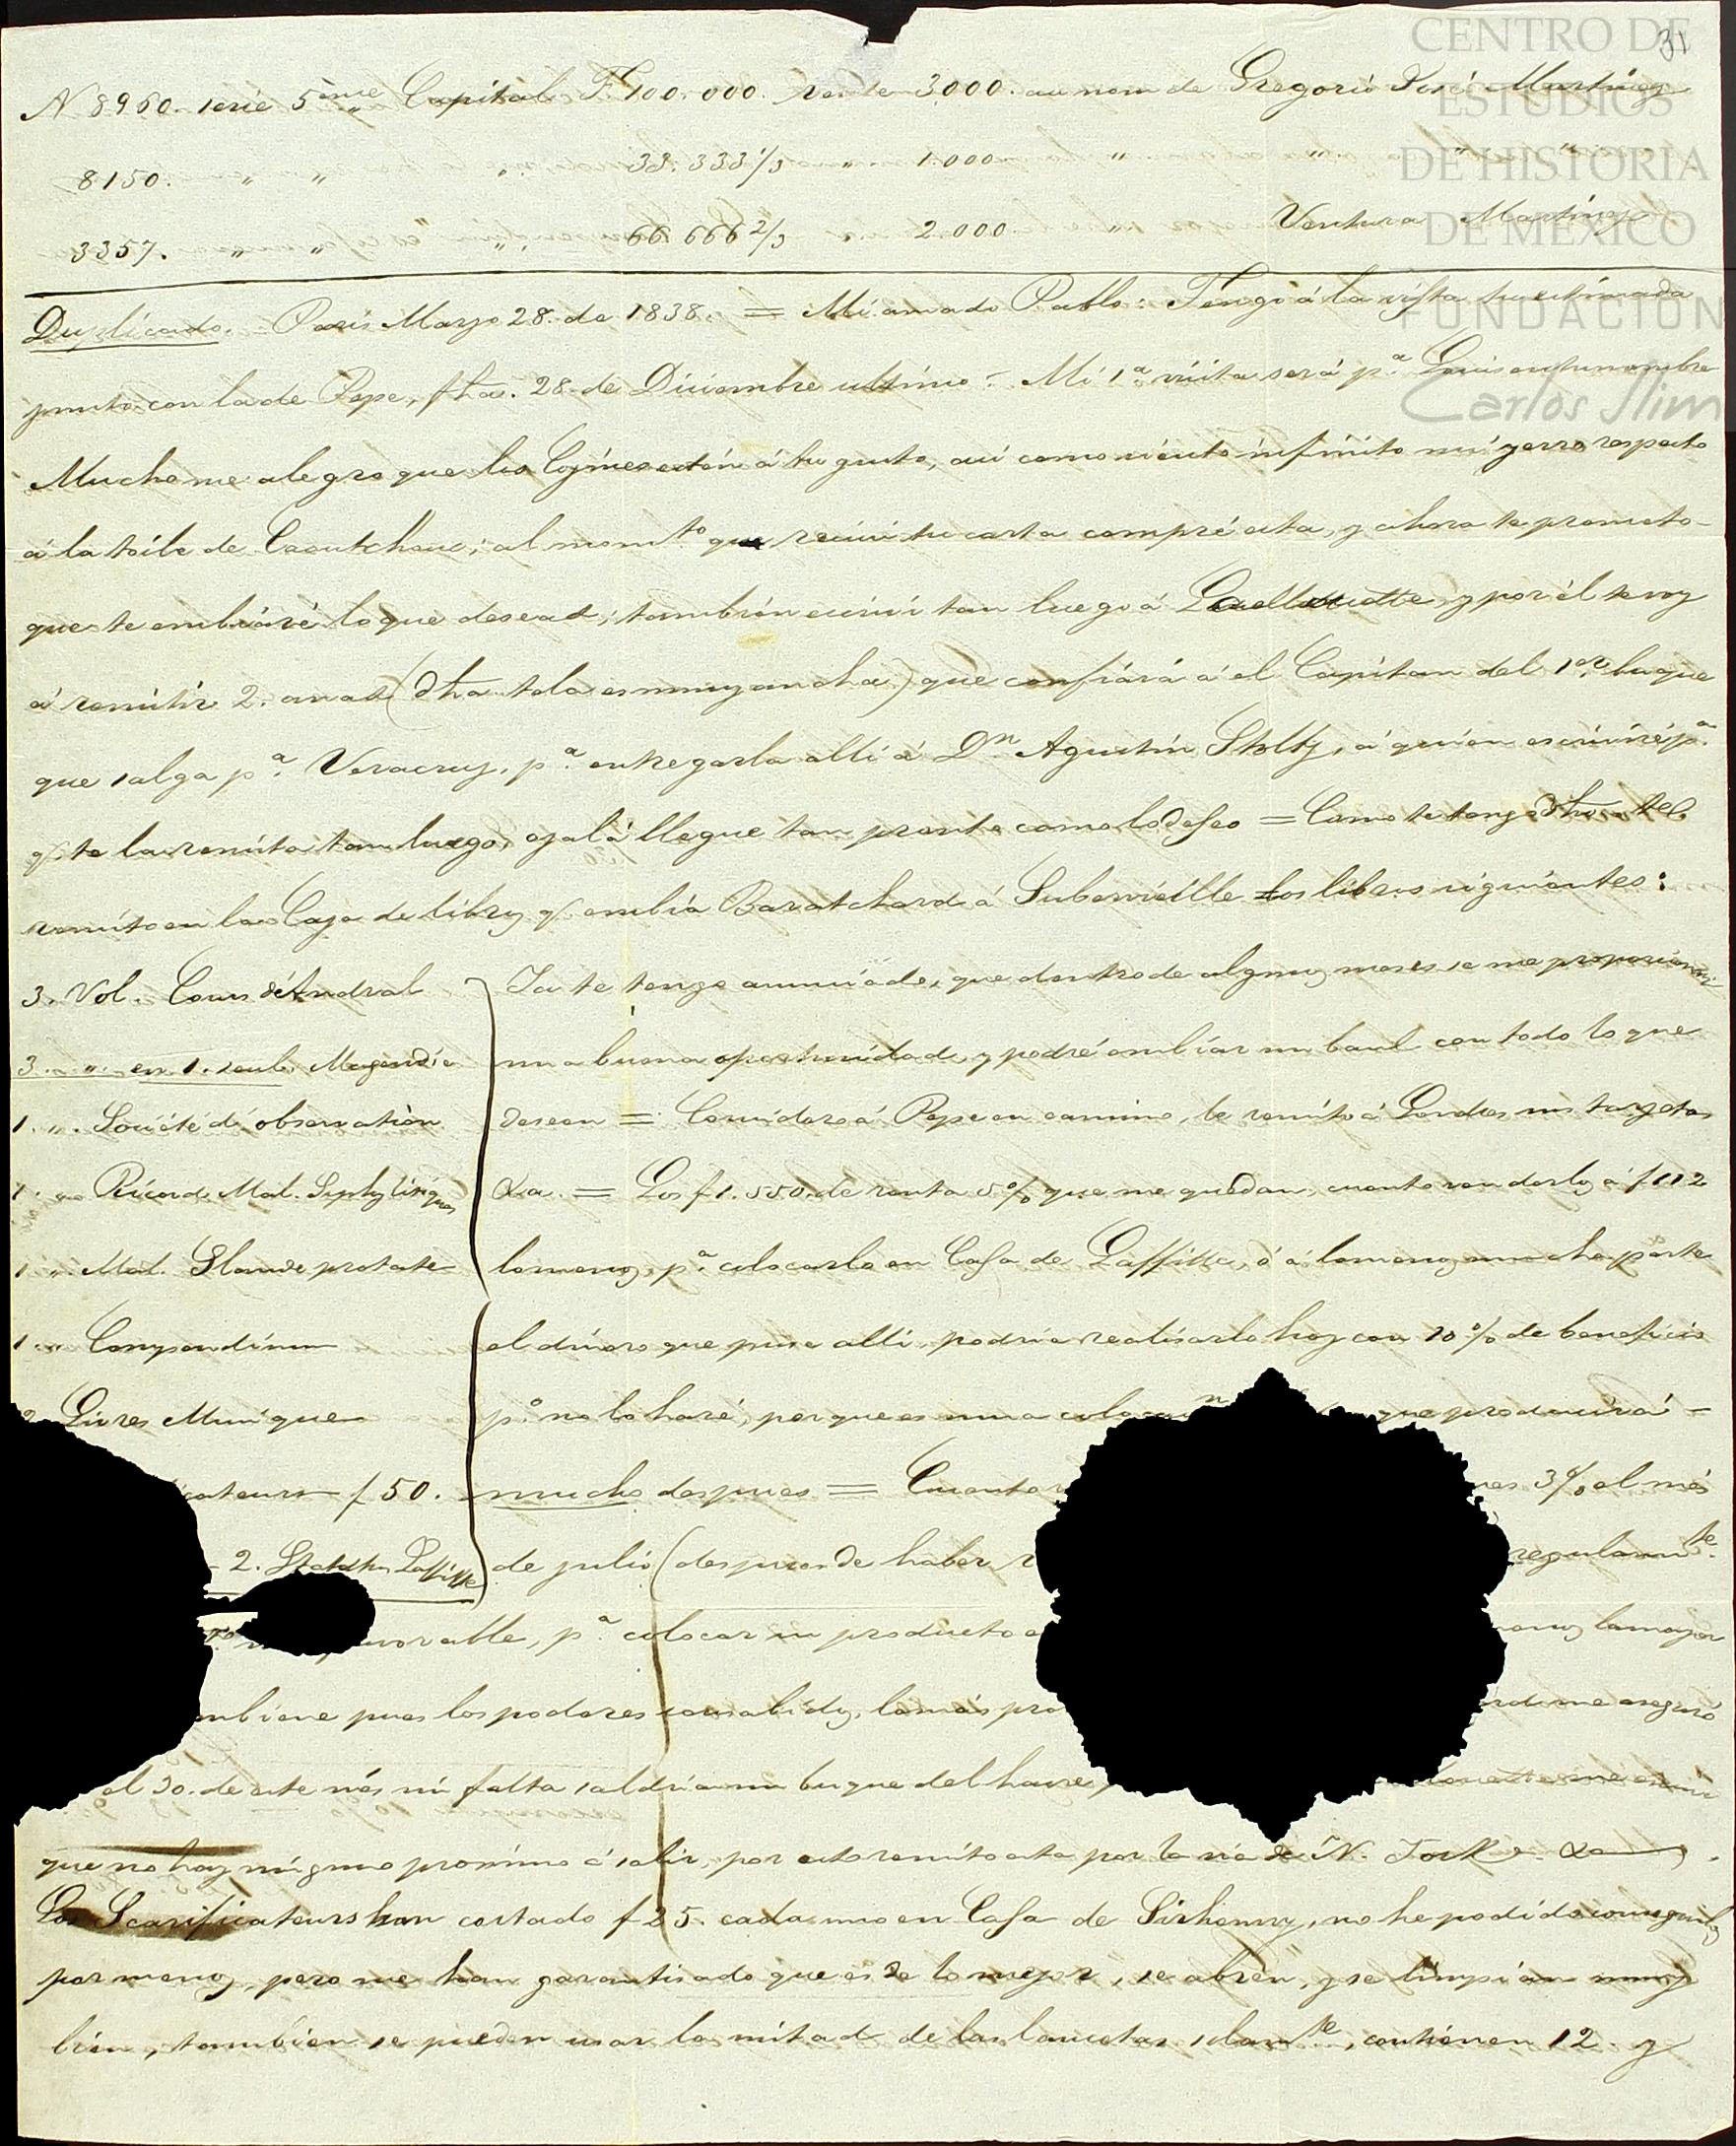 31
N 8960. serie 5ème Capital F. 100.000. rente 3000. au nom de Gregorio José Martinez
8150. " " ". 33.333 1/3 " 1.000. " ". " "
3357. " " ". 66.666 2/3 " 2.000. " Ventura Martinez
Duplicado. Paris Marzo 28. de 1838. = Mi amado Pablo: Tengo á la vista tu estimada
junto con la de Pepe, fha. 28. de Diciembre ultimo = Mi 1.a visita será p.a Louis en tu nombre
Mucho me alegro que los Cojines estén á tu gusto, asi como siento infinito mi yerro respecto
á la toile de Caoutchouc; al mom.to que recivi tu carta compré esta, y ahora te prometo
que te embiaré lo que deseas; también escrivi tan luego á y por él te voy
á remitir 2. anas (dha tela es muy ancha) que confiará á el Capitan del 1er buque
que salga p.a Veracruz, p.a entregarla alli á Dn. Agustin Stoltz, á quien escriviré p.a
q.e te la remita tan luego, ojalá llegue tan pronto como lo deseo = Como te tengo dho, te
remito en la Caja de libros q.e embia Baratchard á Subervieille los libros siguientes:
3. Vol. Cours d'Andral
3. " en 1. seul. Magendie
1. " Société d'observation
1. " Ricord. Mal. Syphylisiques
1 " Mal. Glande protate
1 " Compendium
2 Livres Musique
cateurs f 50.
2. Laffitte
Ya te tengo anunciado, que dentro de algunos meses se me proporciona
una buena oportunidad, y podré embiar un baul con todo lo que
desean = Considero á Pepe en camino, le remito á Londres mis targetas
&a. = Los f 1.550. de renta 5% que me quedan, cuento venderlos á f 112
lo menos, p.a colocarlo en Casa de Laffitte, ó á lo menos mucha parte
el dinero que puse alli, podria realisarlo hoy con 10% de beneficio
p.o no lo haré, porque es una colocac.n que producirá
mucho despues = Cuento 3% el més
de julio (despues de haber regularm.te
favorable, p.a colocar su producto la mayor
embiame pues los poderes consabidos, lo más pro me aseguró
el 30. de este més sin falta saldria un buque del havre,
que no hay ninguno proximo á salir, por esto remito esta por la via de N. York &a.
Los Scarificateurs han costado f 25. cada uno en Casa de Sirhenry, no he podido conseguirlos
por menos, pero me han garantisado que es de lo mejor, se abren, y se limpian muy
bien, tambien se pueden usar la mitad de las lancetas solam.te, contienen 12. y